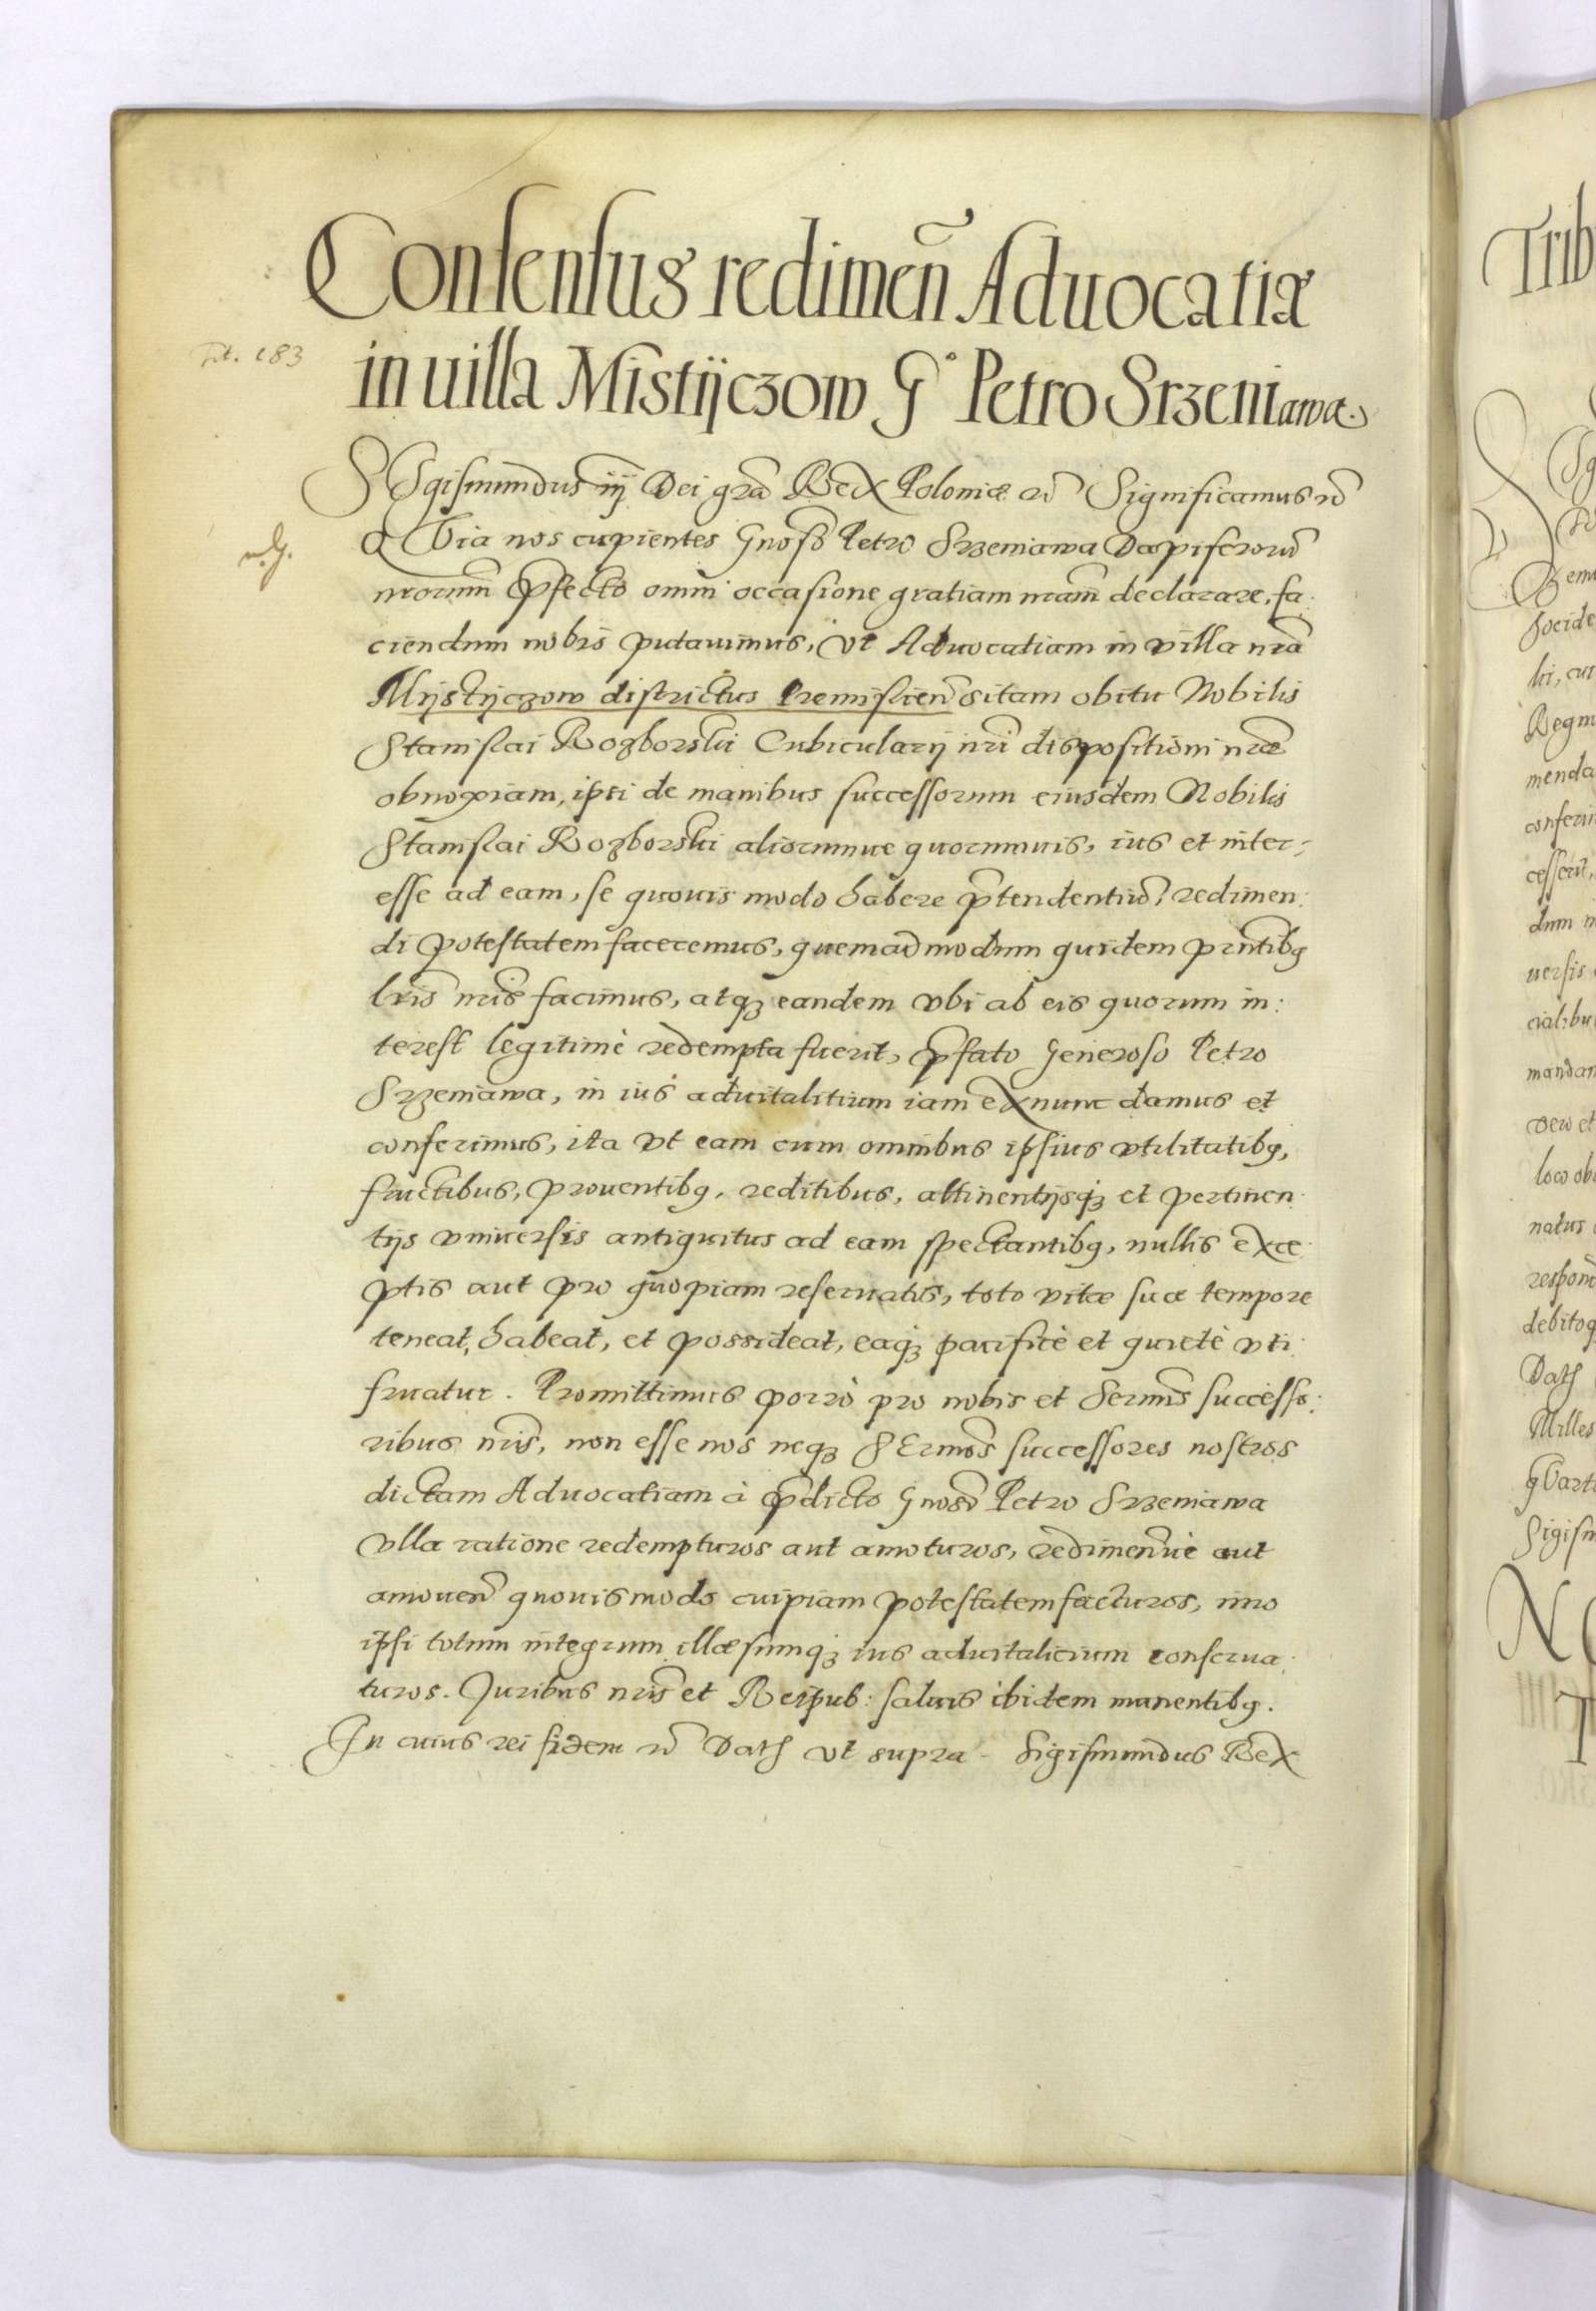 Consensus redimen̄ Aduocatiæ
in uilla Mistijczow G° Petro Srzeniawæ.
183
SIgismundus iij Dei grã Rex Poloniæ etc̃ Significamus etc̃
QVia nos cupientes Gnoso Petro Srzeniawa Dapiferorũ
nrorum p̃fecto omni occasione gratiam nram declarare, fa:
ciendum nobis putauimus, vt Aduocatiam in villa nrã
Mijstijczow districtus Premislien̄ sitam obitu Nobilis
Stanislai Rozborski Cubicularij nri dispositioni nræ
obnoxiam, ipsi de manibus successorum eiusdem Nobilis
Stanislai Rozborski aliorumue quorumuis, ius et inter:
esse ad eam, se quouis modo habere p̃tendentiũ, redimen:
di potestatem faceremus, quemadmodum quidem pñtibq
lris nris facimus, atq₃ eandem vbi ab eis quorum in:
terest legitimè redempta fuerit, p̃fato Generoso Petro
Srzeniawa, in ius aduitalitium iam ex nunc damus et
conferimus, ita vt eam cum omnibus ipsius vtilitatibq,
fructibus, prouentibq, reditibus, attinentijsq₃ et pertinen:
tijs vniuersis antiquitus ad eam spectantibq, nullis exce:
ptis aut pro quopiam reseruatis, toto vitæ suæ tempore
teneat, habeat, et possideat, eaq₃ pacificè et quietè vti:
fruatur. Promittimus porrò pro nobis et Sermis successo:
ribus nris, non esse nos neq₃ SErmos successores nostros
dictam Aduocatiam à p̃dicto Gnoso Petro Srzeniawa
vlla ratione redempturos aut amoturos, redimen̄uè aut
amouen̄ quouis modo cuipiam potestatem facturos, imo
ipsi totum integrum illæsumq₃ ius aduitalicium conserua:
turos. Juribus nris et Reipub: saluis ibidem manentibq.
In cuius rei fidem etc̃ Datʃ vt supra - Sigismundus Rex